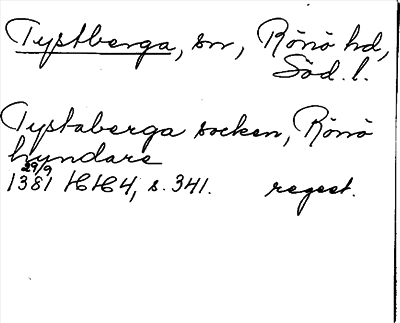 Tystberga, sn, Rönö hd,
Söd. l.
Tystaberga socken, Rönö
hyndare
29/9
1381 HH4, s. 341. regest.